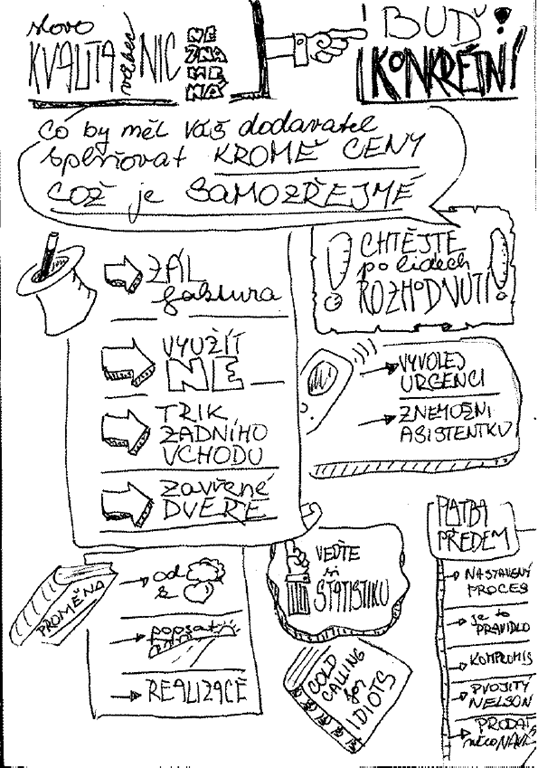 slovo
KVALITA vůbec NIC NE
ZNA
ME
NÁ
BUĎ
KONKRÉTNÍ
co by měl váš dodavatel
splňovat KROMĚ CENY
COŽ je SAMOZŘEJMÉ
CHTĚJTE
po lidech
ROZHODNUTÍ!
ZÁL
faktura
VYUŽÍT
NE
TRIK
ZADNÍHO
VCHODU
zavřené
DVEŘE
VYVOLEJ
URGENCI
ZNEMOŽNI
ASISTENTKU
PLATBA
PŘEDEM
NASTAVENÝ
PROCES
je to
PRAVIDLO
KOMPROMIS
DVOJITÝ
NELSON
PRODAT
něco NAVÍC
PROMĚNA
od
popsat
REALIZACE
VEĎTE
si
STATISTIKU
COLD
CALLING
for
IDIOTS